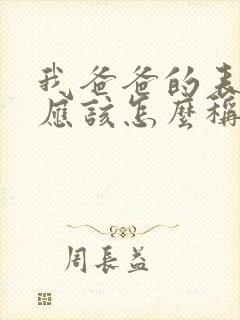 我爸爸的表
應該怎麼稱
周長益